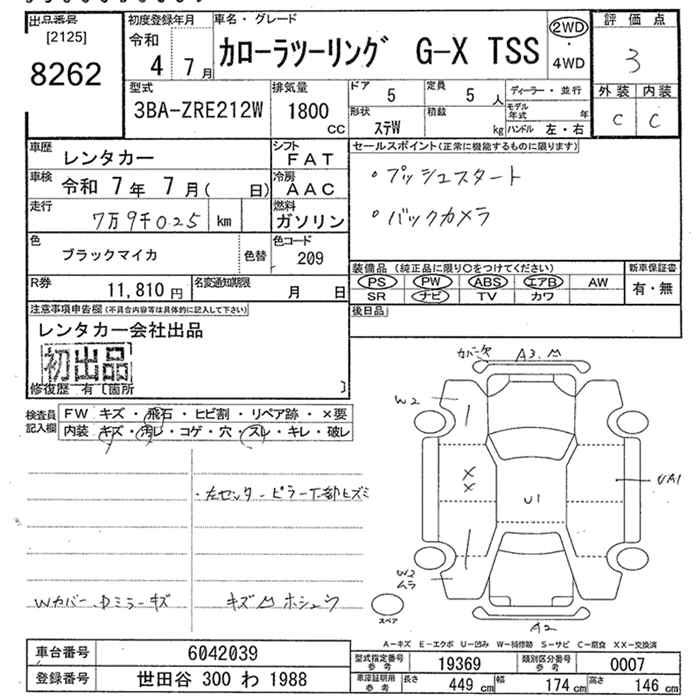 出品番号
[2125]
8262
初度登録年月
令和
4 7月
車名・グレード
カローラツーリング G-X TSS
2WD
・
4WD
評価点
3
外装 内装
C C
型式
3BA-ZRE212W
排気量
1800
CC
ドア
5
定員
5 人
形状
ステW
積載
kg
ディーラー・並行
モデル年式 年
ハンドル 左・右
車歴
レンタカー
シフト
FAT
車検
令和 7年 7月( 日)
冷房
AAC
走行
7万9千025 km
燃料
ガソリン
色
ブラックマイカ
色替
色コード
209
R券
11,810 円
名変通知期限
月 日
セールスポイント(正常に機能するものに限ります)
・プッシュスタート
・バックカメラ
装備品(純正品に限り○をつけてください)
PS PW ABS エアB AW
SR ナビ TV カワ
新車保証書
有・無
後日品
注意事項申告欄(不具合内容等は具体的に記入して下さい)
レンタカー会社出品
初出品
修復歴 有〔箇所 〕
検査員記入欄
FW キズ・飛石・ヒビ割・リペア跡・×要
内装 キズ・汚レ・コゲ・穴・スレ・キレ・破レ
・左センターピラー下部ヒズミ
Wカバー、Dミラーキズ
キズM ホシュウ
カバー欠 A3.M
W2
X
X
U1
UA1
W2
ムラ
A2
スペア
A-キズ E-エクボ U-凹み W-補修跡 S-サビ C-腐食 XX-交換済
車台番号
6042039
登録番号
世田谷 300 わ 1988
型式指定番号
参考
19369
類別区分番号
参考
0007
車庫証明用
参考
長さ 449 cm 幅 174 cm 高さ 146 cm